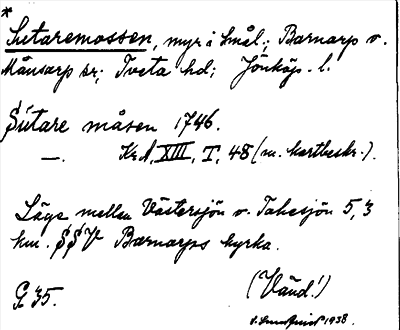 *
Sutaremossen, myr i Smål.; Barnarp o.
Månsarp sr; Tveta hd; Jönköp. l.
Sutare måsen 1746.
—. Kr A, XIII, T, 48 (m. kartbeskr.).
Läge mellan Västersjön o. Tahesjön 5,3
km. SSV Barnarps kyrka.
(Vänd!)
G 35.
1938.